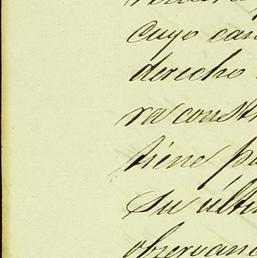 cuyo can
derecho
ra constr
tiene pu
su últi
observan